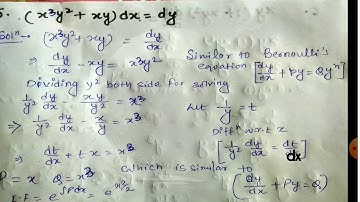 (x³y² + xy) dx = dy
Solⁿ→ (x³y² + xy) = dy/dx
⇒ dy/dx - xy = x³y² Similar to Bernoulli's equation [dy/dx + Py = Qyⁿ]
Dividing y² both side for solving
1/y² dy/dx - xy/y² = x³ Let 1/y = t
⇒ 1/y² dy/dx - x/y = x³ Diffⁿ w.r.t x
⇒ dt/dx + tx = x³ [1/y² dy/dx = dt/dx]
P = x Q = x³ which is similar to
I.F = e^∫Pdx = e^x²/2 (dy/dx + Py = Q)